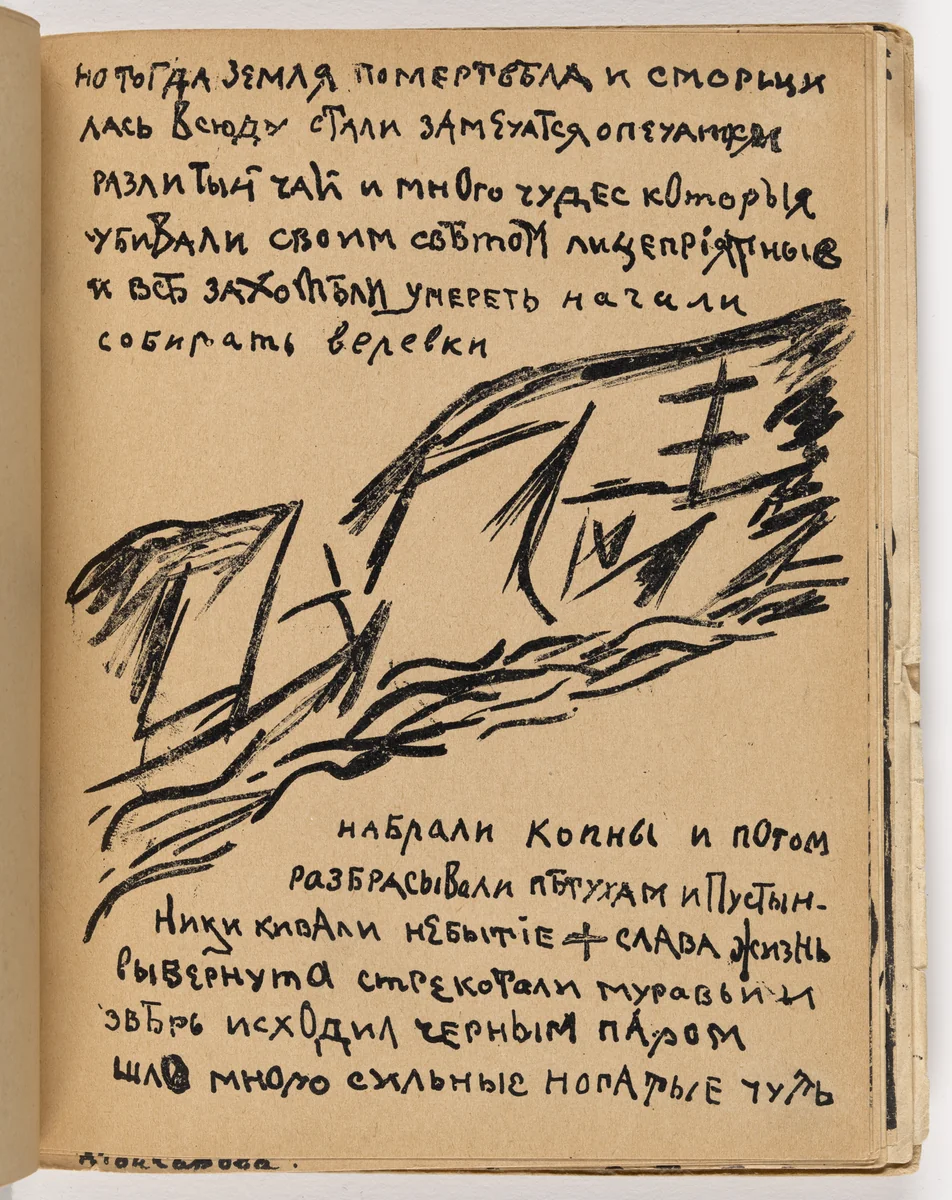 но тогда земля помертвѣла и сморщи
лась всюду стали замечатся опечатки
разлитый чай и много чудес которыя
убивали своим свѣтом лицепріятные
и всѣ захотѣли умереть начали
собирать веревки
набрали копны и потом
разбрасывали пѣтухам и пустын-
ники кивали небытіе + слава жизнь
вывернута стрекотали муравьи и
звѣрь исходил черным паром
шло много сильные ногатые чуть
Гончарова.